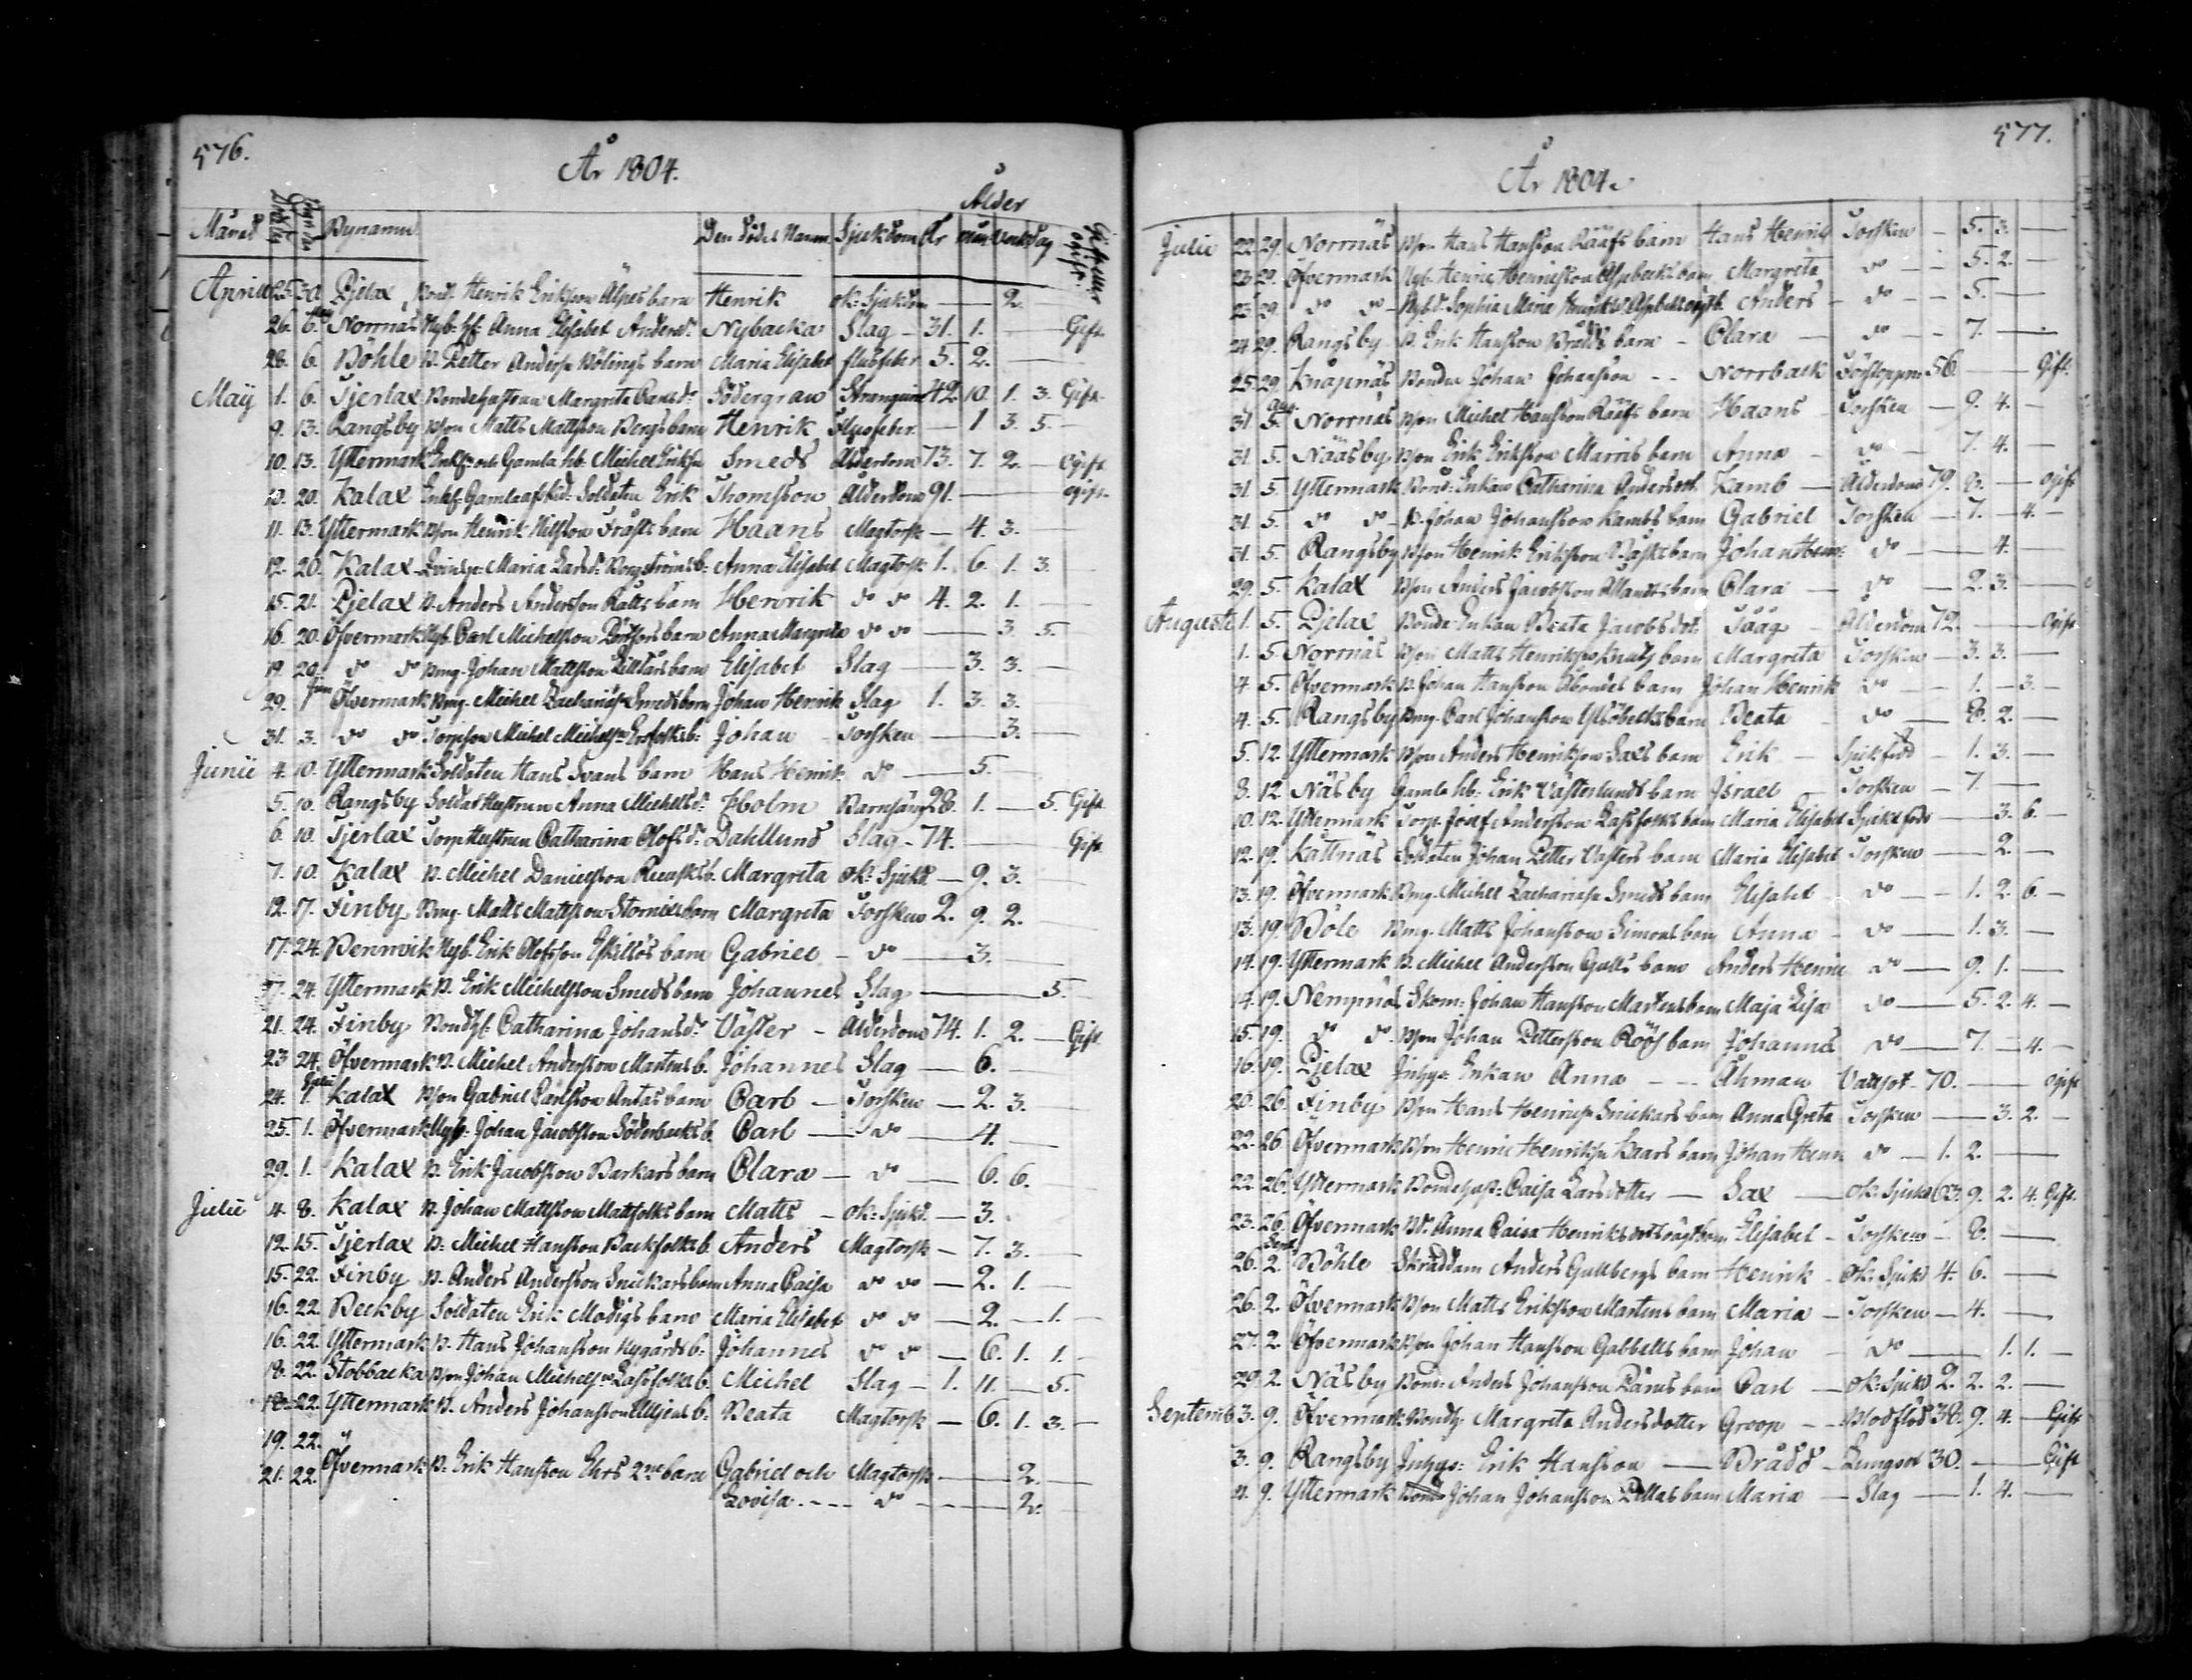 576.
År 1804.
Ålder
Månad Bynamn Den dödes Namn Sjukdom År mån veck dag Gift eller ogift
Aprill 25. 30. Pjelax Bond. Henrik Eriksson Älpes barn Henrik ok: Sjukdom — 2.
26. 6. Norrnäs Nyb: hf: Anna Elisabet Andersd: Nybacka Slag 31. 1. — Gift
28. 6. Böhle B. Petter Anderss: Bölings barn Maria Elisabet flusfeber 5. 2.
Maÿ 1. 6. Tjerlax Bondehustrun Margreta Carlsd: Södergran 42. 10. 1. 3. Gift
9. 13. Rangsby Bson Matts Mattsson Bergs barn Henrik Flusfeber — 1 3. 5.
10. 13. Yttermark Enkl: och Gamla hb. Michel Eriks: Smeds Ålderdom 73. 7. 2. Ogift
10. 20. Kalax Enkl: Gamla Soldaten Erik Thomsson Ålderdom 91. — ogift
11. 13. Yttermark Bson Henrik Nilsson Fråsts barn Haans Magtorsk — 4. 3.
12. 20. Kalax Maria Larsd: b: Anna Elisabet Magtorsk 1. 6. 1. 3.
15. 21. Pjelax B. Anders Andersson Ratts barn Henrik do do 4. 2. 1.
16. 20. Öfvermark Nyb. Carl Michelsson barn Anna Margreta do do — 3. 5.
19. 20. do do Bmg. Johan Mattsson Lillkårs barn Elisabet Slag — 3. 3.
29. Juni Öfvermark Bmg. Michel Zachariass: Smeds barn Johan Henrik Slag 1. 3. 3.
31. 3. do do Torpson Michel Michelss: Ersfolks b: Johan Torsken — 3.
Junii 4. 10. Yttermark Soldaten Hans Svans barn Hans Henrik do — 5.
5. 10. Rangsby Soldat Hustrun Anna Michelsd: Holm Barnsäng 28. 1. — 5. Gift
6. 10. Tjerlax Torp Hustrun Catharina Olofsd: Dahllund Slag 74. — Gift
7. 10. Kalax B. Michel Danielsson b. Margreta ok: Sjukd. — 9. 3.
12. 17. Finby Bmg. Matts Mattsson Stornils barn Margreta Torsken 2. 9. 2.
17. 24. Benwik Nyb. Erik Olofsson Eskillös barn Gabriel do — 3.
17. 24. Yttermark B. Erik Michelsson Smeds barn Johannes Slag — 5.
21. 24. Finby Bondhf: Catharina Johansd: Väster Ålderdom 74. 1. 2. — Gift
23 24. Öfvermark B. Michel Andersson Martens b. Johannes Slag — 6.
24. 1. Kalax Bson Gabriel Carlsson Antas barn Carl Torsken — 2. 3.
25. 1. Öfvermark Nyb: Johan Jacobsson Söderbacks b. Carl — do — 4.
29. 1. Kalax B. Erik Jacobsson Barkars barn Clara — do — 6. 6.
Julii 4. 8. Kalax B. Johan Mattsson Mattfolks barn Matts ok: Sjukd. — 3.
12. 15. Tjerlax B: Michel Hansson Backfolks b. Anders Magtorsk — 7. 3.
15. 22. Finby B. Anders Andersson Snickars barn Anna Caisa do do — 2. 1.
16. 22. Beckby Soldaten Erik Modigs barn Maria Elisabet do do — 2. — 1.
16. 22. Yttermark B. Hans Johansson Nygårds b: Johannes do do — 6. 1. 1.
18. 22. Stobbacka Bson Johan Michelss: Lassfolks b. Michel Slag — 1. 11. — 5.
18. 22. Yttermark B. Anders Johansson b: Beata Magtorsk — 6. 1. 3.
19. 22.
21. 22. Öfvermark B: Erik Hansson Ehrs 2ne barn Gabriel och Magtorsk — 2.
Lovisa — do — 2.
577.
År 1804.
Julii 22. 29. Norrnäs Bson Hans Hansson Rääfs barn Hans Henrik Torsken — 5. 3.
23. 29. Öfvermark Nyb. Henric Henricsson barn Margreta do — 5. 2.
23. 29. do do Nyb. d. Sophia Maria Anders do — 5.
24. 29. Rangsby B. Erik Hansson Brådds barn Clara — do — 7.
25. 29. Knåpnäs Bonden Johan Johansson Norrback 56. — Gift
31. 5. Norrnäs Bson Michel Hansson Rääfs barn Haans Torsken — 9. 4.
31. 5. Nääsby Bson Erik Eriksson Marris barn Anna do — 7. 4.
31. 5. Yttermark Bond: Enkan Catharina Andersdt Kamb Ålderdom 79. 8. — ogift
31. 5. do do B. Johan Johansson Kambs barn Gabriel Torsken — 7. — 4.
31. 5. Rangsby Bson Henrik Eriksson barn Johan Henr: do — 4.
29. 5. Kalax Bson Anders Jacobsson barn Clara — do — 2. 3.
Augusti 1. 5. Pjelax Bonde Enkan Beata Jacobsdt. Ålderdom 72. — Ogift
1. 5. Norrnäs Bson Matts Henriksson Knuts barn Margreta Torsken — 3. 3.
4. 5. Öfvermark B. Johan Hansson Åbondes barn Johan Henrik do — 1. — 3.
4. 5. Rangsby Bmg. Carl Johansson barn Beata do — 8. 2.
5. 12. Yttermark Bson Anders Henriksson Sax barn Erik — Sjukfödd — 1. 3.
8. 12. Näsby Gamla hb: Erik Västerlunds barn Israel Torsken — 7.
10. 12. Yttermark Torp. Josef Andersson Lassfolks barn Maria Elisabet Sjukl. född — 3. 6.
12. 19. Kåttnäs Soldaten Johan Petter Vasters barn Maria Elisabet Torsken — 2.
13. 19. Öfvermark Bmg. Michel Zachariass: Smeds barn Elisabet do — 1. 2. 6.
13. 19. Böle Bmg. Matts Johansson Simons barn Anna do — 1. 3.
14. 19. Yttermark B. Michel Andersson Gulls barn Anders Henric do — 9. 1.
14. 19. Nempnäs Skom: Johan Hansson Martens barn Maja Lisa do — 5. 2. 4.
15. 19. do do. Bson Johan Pettersson Röös barn Johanna do — 7. — 4.
16. 19. Pjelax Inhys: Enkan Anna — Åhman Vattsot 70. — Ogift
20. 26. Finby Bson Hans Henricss: Snickars barn Anna Greta Torsken — 3. 2.
22. 26 Öfvermark Bson Henric Henrikss: Kaars barn Johan Henr do — 1. 2.
22. 26. Yttermark Bondehust: Caisa Larsdotter — Sax — ok: Sjukd 63. 9. 2. 4. Gift
23. 26. Öfvermark Bd: Anna Caisa Henriksdotr oägt barn Elisabet Torsken — 8.
26. 2. Böhle Skräddarn Anders Gullbergs barn Henrik ok: Sjukd 4. 6.
26. 2. Öfvermark Bson Matts Eriksson Martens barn Maria — Torsken — 4.
27. 2. Öfvermark Bson Johan Hansson Gabbells barn Johan do — 1. 1.
29. 2. Näsby Bond. Anders Johansson barn Carl — ok: Sjukd 2. 2. 2.
Septemb 3. 9. Öfvermark Bondh: Margreta Andersdotter Groop — Blodflöd 38. 9. 4. — Gift
3. 9. Rangsby Inhys: Erik Hansson — Brådd Lungsot 30. — Gift
4. 9. Yttermark Johan Johansson Pellas barn Maria — Slag — 1. 4.